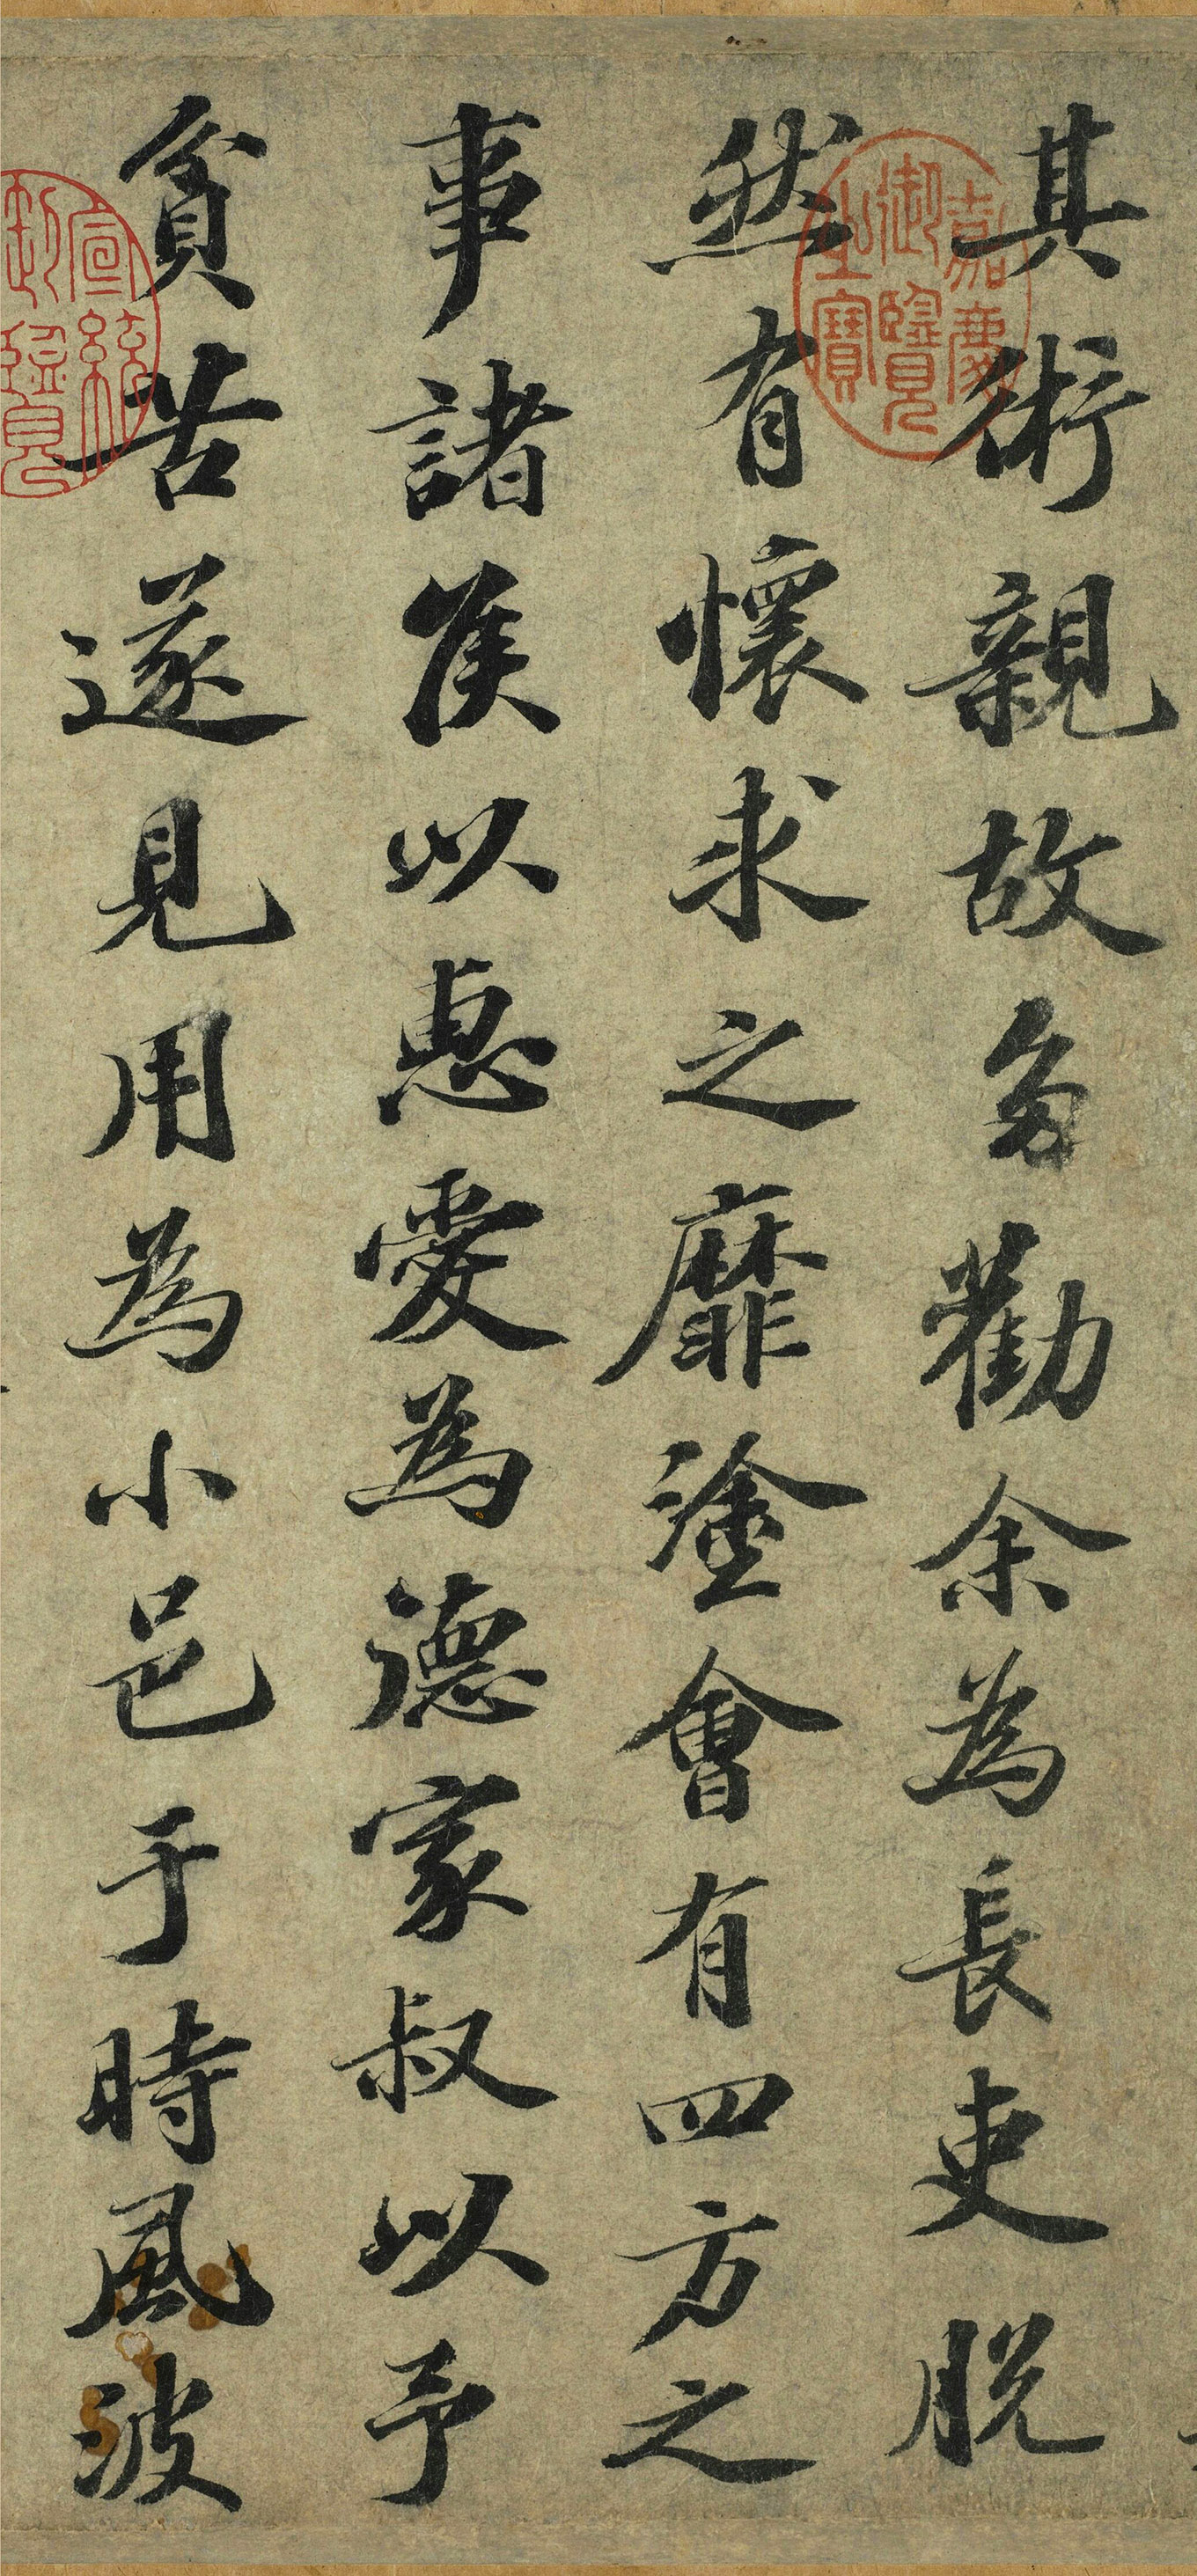 其術親故多勸余為長吏脫
然有懷求之靡塗會有四方之
事諸侯以惠愛為德家叔以予
貧苦遂見用為小邑于時風波
嘉慶御覽之寶
宣統御覽